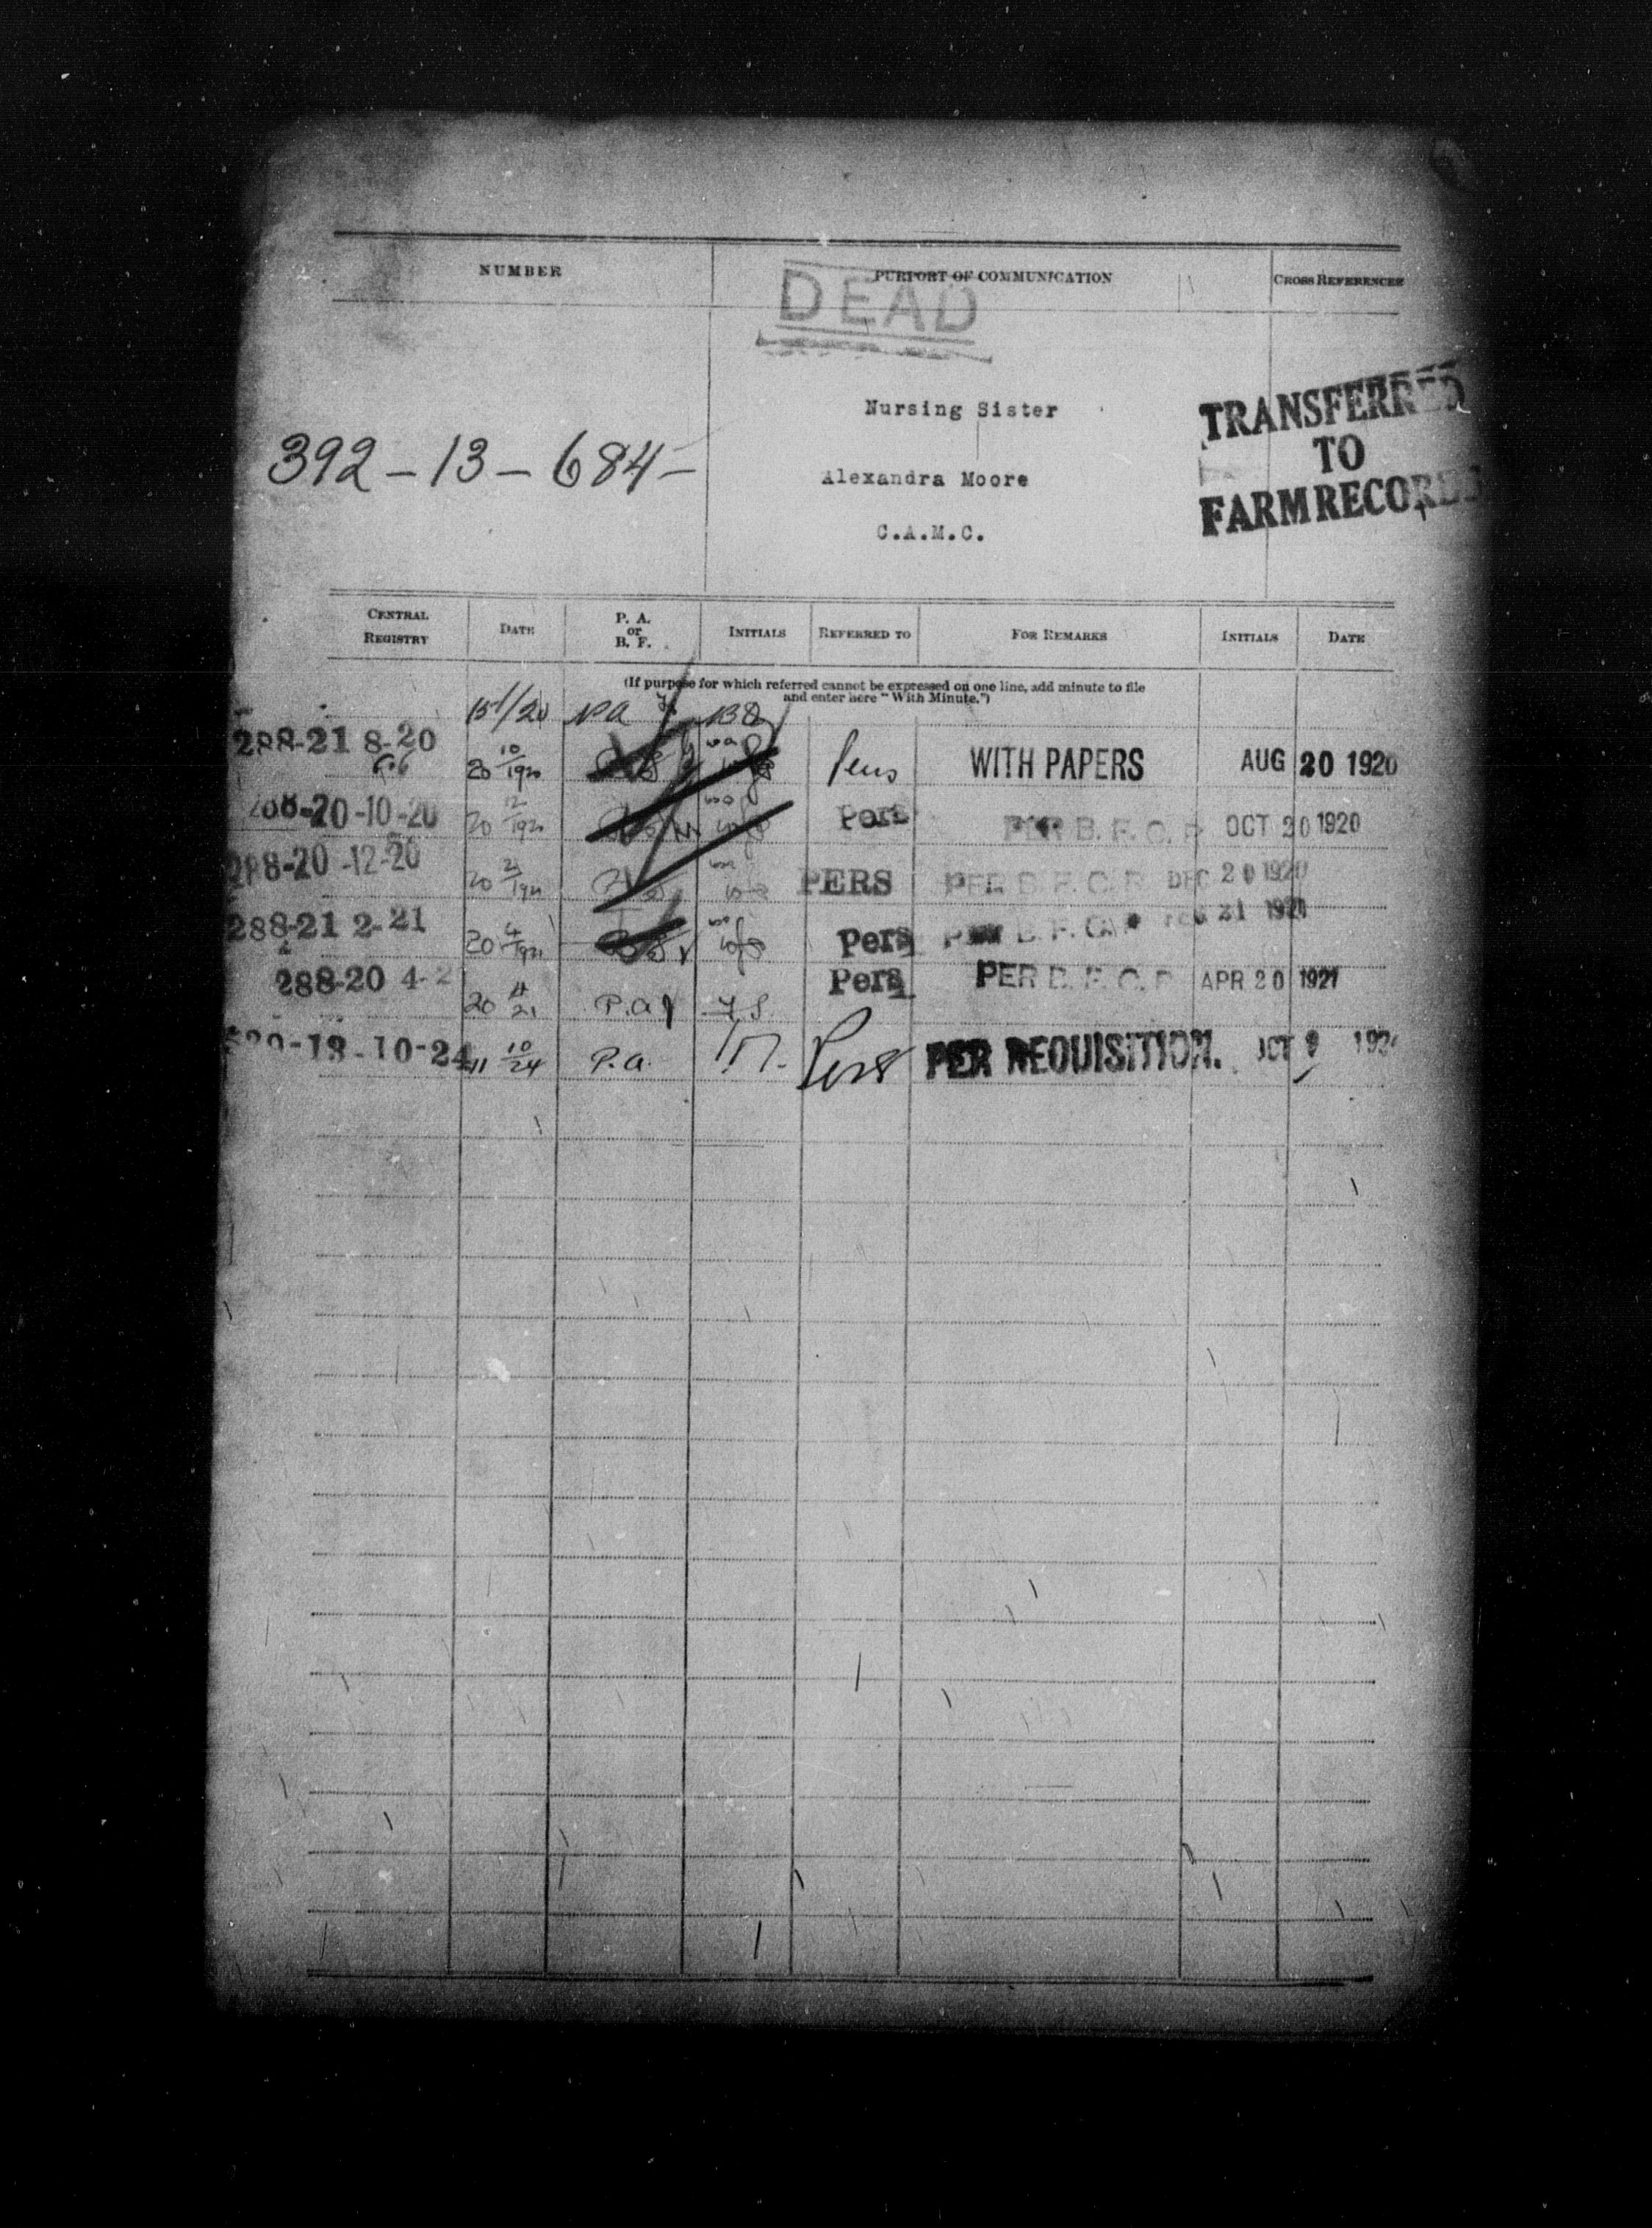 NUMBER
PURPORT OF COMMUNICATION
CROSS REFERENCES
DEAD
Nursing Sister
TRANSFERRED
392-13-684-
TO
Alexandra Moore
FARM RECORDS
C.A.M.C.
CENTRAL REGISTRY
DATE
P. A. or B. F.
INITIALS
REFERRED TO
FOR REMARKS
INITIALS
DATE
(If purpose for which referred cannot be expressed on one line, add minute to file
and enter here "With Minute.")
288-21 8-20 20 10/1920 WITH PAPERS AUG 20 1920
-20-10-20 20 12/1920 Pers PER B. F. C. R. OCT 20 1920
288-20-12-20 20 2/1921 PERS PER B. F. C. R. DEC 20 1920
288-21 2-21 20 4/1921 Pers B. F. 21 1921
288-20 4-2 20 4/21 P.A. Pers PER B. F. C. R. APR 20 1921
-13-10-24 11 10/24 P.A. Pers PER REQUISITION. OCT